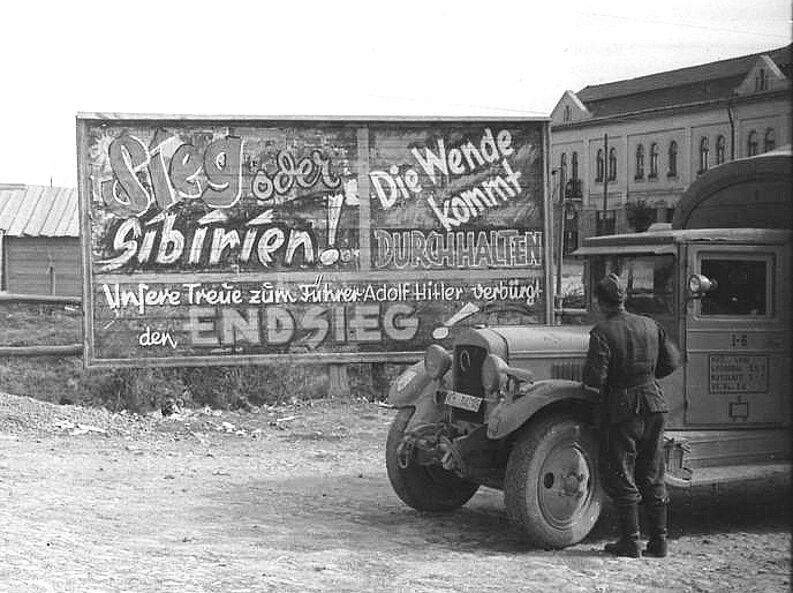 Sieg oder
Sibirien!
Die Wende
kommt
DURCHHALTEN
Unsere Treue zum Führer Adolf Hitler verbürgt
den ENDSIEG!